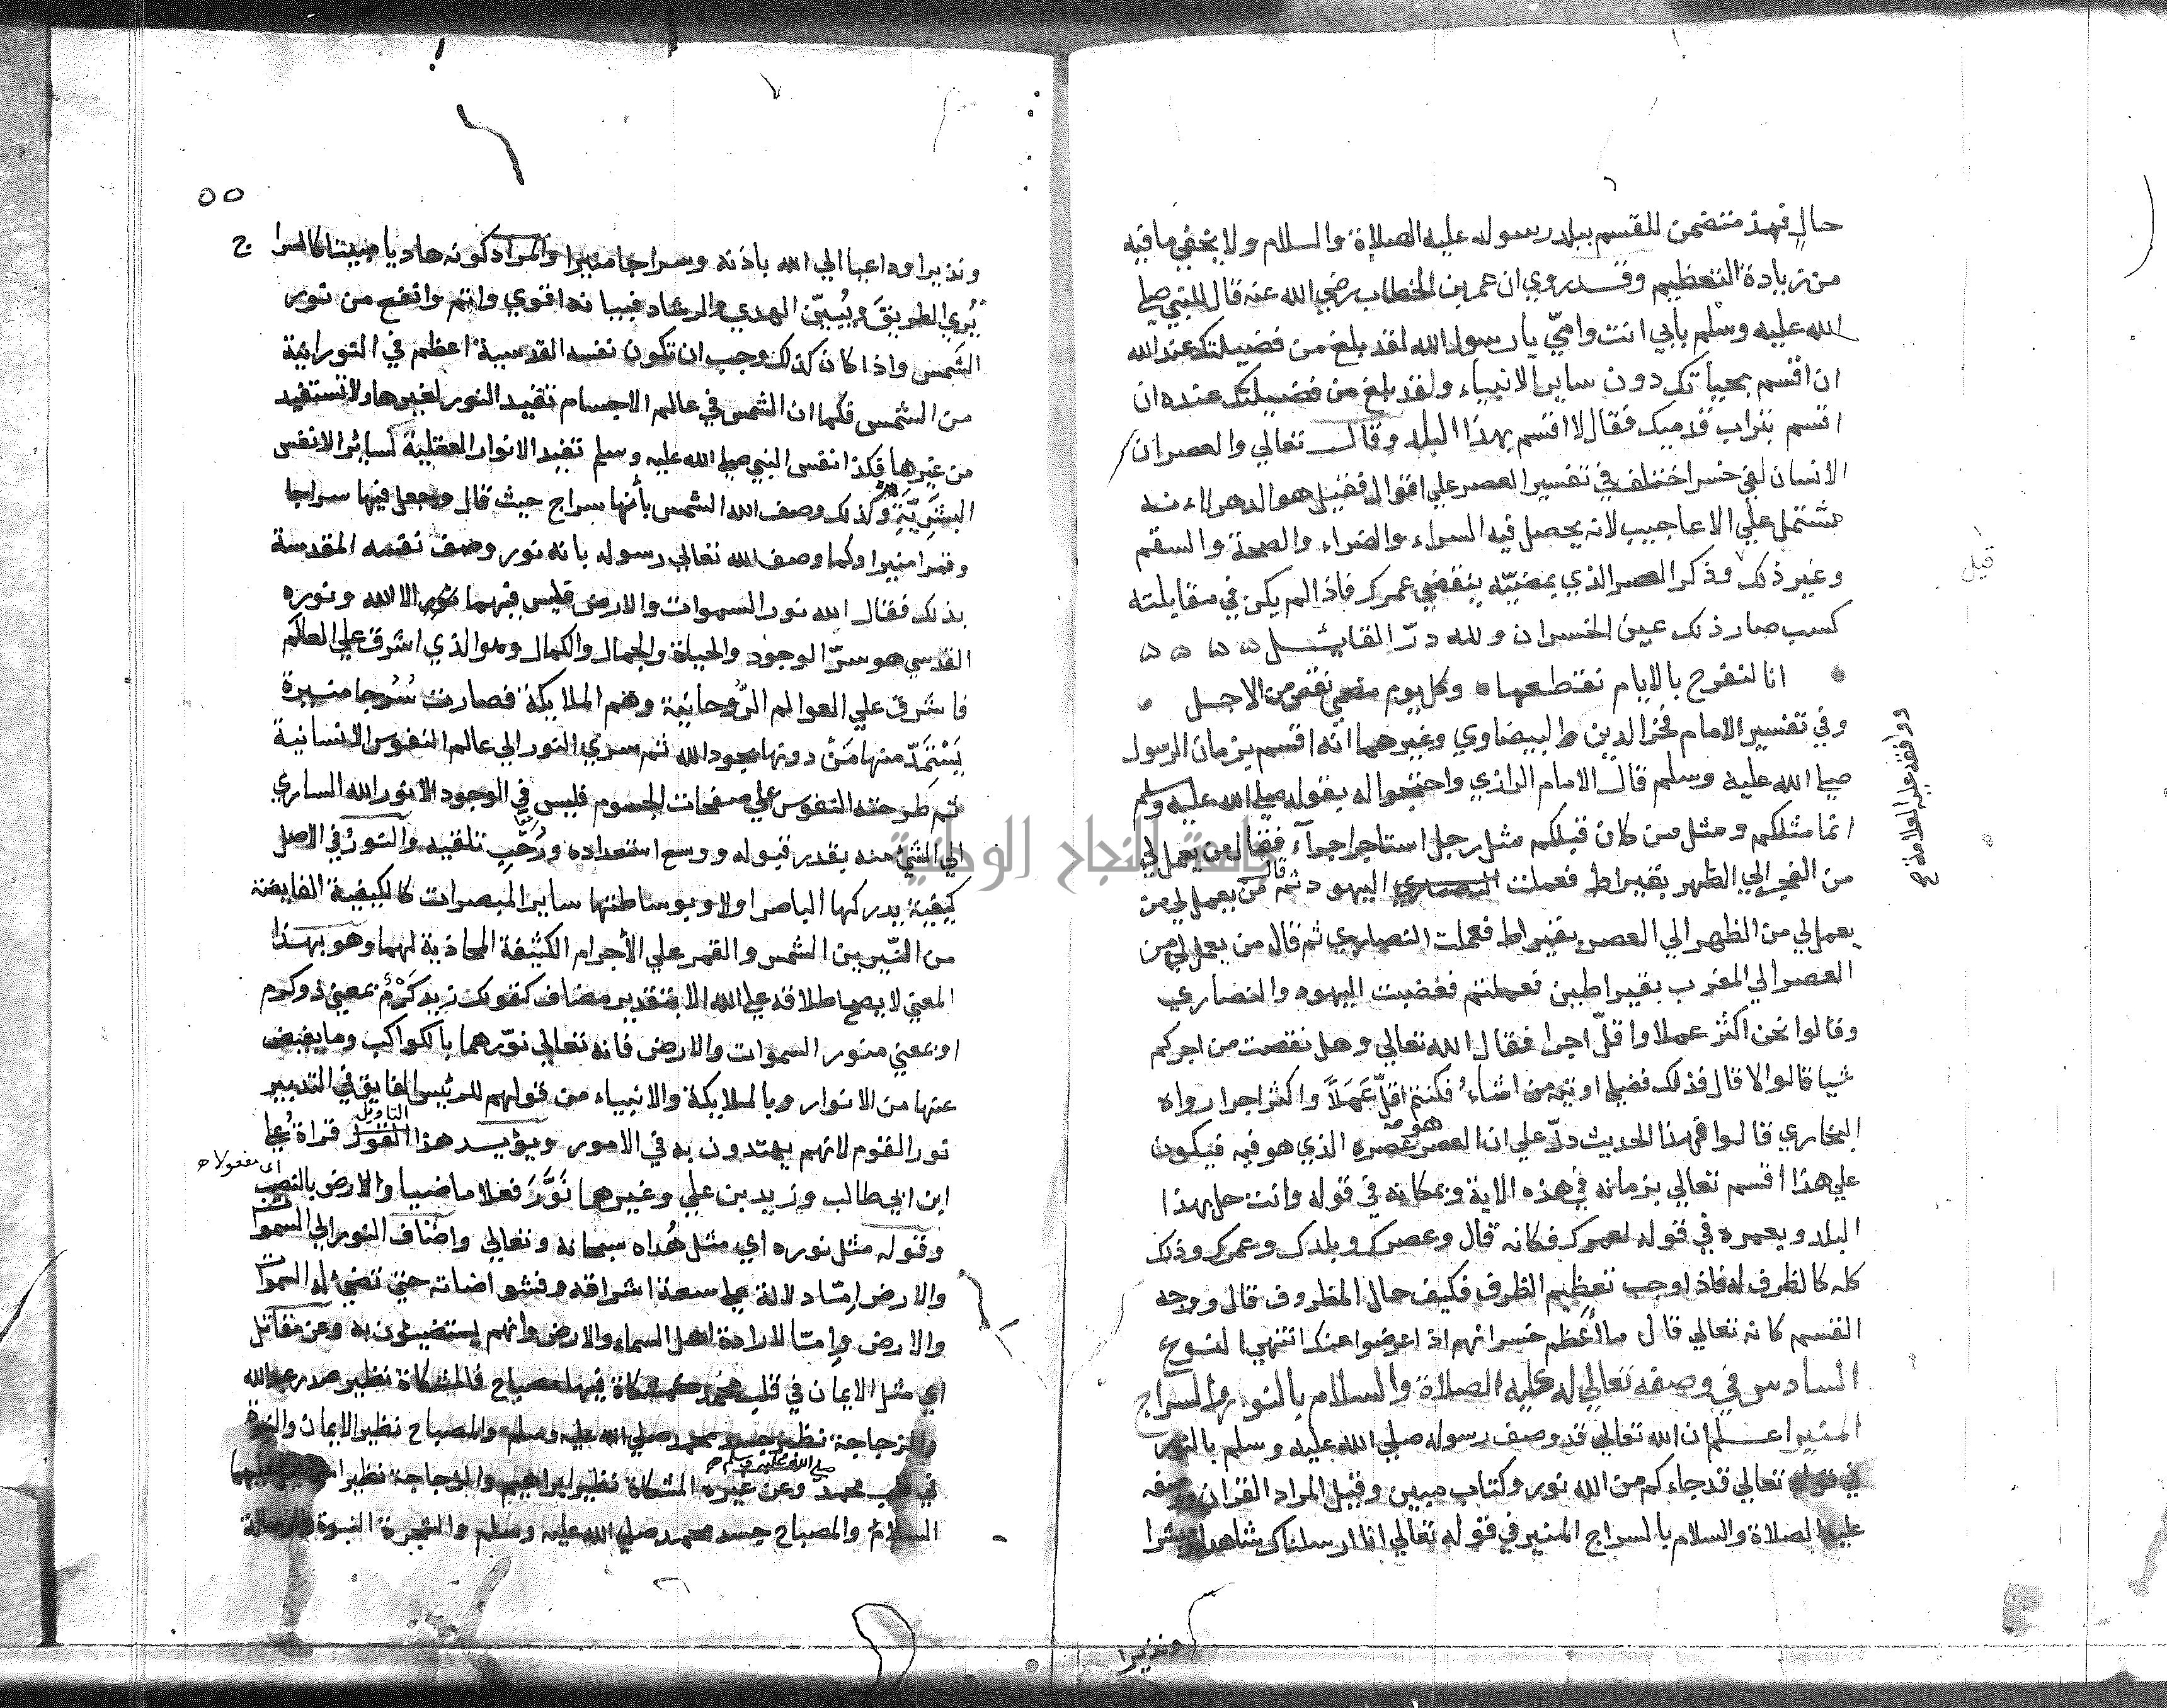 حال فهذ متضمن للقسم ببلد رسوله عليه الصلاة والسلام ولا يخفي ما فيه
من زيادة التعظيم وقد روي ان عمر بن الخطاب رضي الله عنه قال للنبي صلي
الله عليه وسلم بأبي انت وامّي يا رسول الله لقد بلغ من فضيلتك عند الله
ان اقسم بحياتك دون ساير الانبياء ولقد بلغ من فضيلتك عنده ان
اقسم بتراب قدميك فقال لا اقسم بهذا البلد وقال تعالي والعصر ان
الانسان لفي خسر اختلف في تفسير العصر علي اقوال فقيل هو الدهر لانه
مشتمل علي الاعاجيب لانه يحصل فيه السراء والضراء والصحة والسقم
وغير ذلك وذكر العصر الذي بمضيّه ينقضي عمرك فاذا لم يكن في مقابلته
كسب صار ذلك عين الخسران ولله درّ القائل
انا لنفرح بالايام نقطعها وكل يوم مضي نقص من الاجل
وفي تفسير الامام فخر الدين والبيضاوي وغيرهما انه اقسم بزمان الرسول
صلي الله عليه وسلم قال الامام الرازي واحتجوا له بقوله صلي الله عليه وسلم
انما مثلكم ومثل من كان قبلكم مثل رجل استاجر اجراء فقال من يعمل لي
من الفجر الي الظهر بقيراط فعملت اليهود ثم قال من يعمل لي من
يعمل لي من الظهر الي العصر بقيراط فعملت النصاري ثم قال من يعمل لي من
العصر الي المغرب بقيراطين فعملتم فغضبت اليهود والنصاري
وقالوا نحن اكثر عملا واقلّ اجرا فقال الله تعالي وهل نقصت من اجركم
شيا قالوا لا قال فذلك فضلي اوتيه من اشاء فكنتم اقلّ عَمَلاً واكثر اجرا رواه
البخاري قالوا فهذا الحديث دلّ علي ان العصر هو عصره الذي هو فيه فيكون
علي هذا اقسم تعالي بزمانه في هذه الاية وبمكانه في قوله وانت حل بهذا
البلد وبعمره في قوله لعمرك فكانه قال وعصرك وبلدك وعمرك وذلك
كله كالظرف له فاذا وجب تعظيم الظرف فكيف حال المظروف قال ووجه
القسم كانه تعالي قال ما اعظم خسرانهم اذ اعرضوا عنك انتهي النوع
السادس في وصفه تعالي له عليه الصلاة والسلام بالنور والسراج
المنير اعلم ان الله تعالي قد وصف رسوله صلي الله عليه وسلم بالنور
في قوله تعالي قد جاءكم من الله نور وكتاب مبين وقيل المراد القران ووصفه
عليه الصلاة والسلام بالسراج المنير في قوله تعالي انا ارسلناك شاهدا ومبشرا
ونذيرا
قيل
٥٥
ونذيرا وداعيا الي الله باذنه وسراجا منيرا والمراد كونه هاديا مبينا كالسراج
يُري الطريقَ ويُبيّن الهدي والرشاد فبيانه اقوي واتم وانفع من نور
الشمس واذا كان كذلك وجب ان تكون نفسه القدسية اعظم في النورانية
من الشمس فكما ان الشمس في عالم الاجسام تفيد النور لغيرها ولا تستفيد
من غيرها فكذا نفس النبي صلي الله عليه وسلم تفيد الانوار العقلية لسائر الانفس
البشريّة وكذلك وصف الله الشمس بأنها سراج حيث قال وجعل فيها سراجا
وقمرا منيرا وكما وصف الله تعالي رسوله بانه نور وصف نفسه المقدسة
بذلك فقال الله نور السموات والارض فليس فيهما نور الا الله ونوره
القدسي هو سرّ الوجود والحياة والجمال والكمال وهو الذي اشرق علي العالم
فاشرق علي العوالم الرُّوحانية وهم الملايكة فصارت سُرُجا منيرة
يَسْتَمِدّ منها مَنْ دونها بجود الله ثم سري النور الي عالم النفوس الانسانية
ثم طرحته النفوس علي صفحات الجسوم فليس في الوجود الا نور الله الساري
الي الشيء منه بقدر قبوله ووسع استعداده ورُحْبِ تلقيه والنورُ في الاصل
كيفية يدركها الباصر اولا وبوساطتها ساير المبصرات كالكيفية الفايضة
من النّيرين الشمس والقمر علي الأجرام الكثيفة المحاذية لهما وهو بهذا
المعني لا يصح اطلاقه علي الله الا بتقدير مضاف كقولك زيد كَرَمٌ بمعني ذو كرم
او بمعني منور السموات والارض فانه تعالي نوّرهما بالكواكب وما يفيض
عنها من الانوار وبالملايكة والانبياء من قولهم للرئيس الفايق في التدبير
نور القوم لانهم يهتدون به في الامور ويؤيد هذا التاويل قراة علي
ابن ابي طالب وزيد بن علي وغيرهما نَوَّرَ فعلا ماضيا والارض بالنصب
اي مفعولا
وقوله مثل نوره اي مثل هُداه سبحانه وتعالي واضاف النور الي السموات
والارض اِمّا دلالة علي سعة اشراقه وفشو اضاته حتي تضئ له السموات
والارض وإمّا لارادة اهل السماء والارض وانهم يستضيئون به وعن مقاتل
اي مثل الايمان في قلب محمد كمشكاة فيها مصباح فالمشكاة نظير صدر عبد الله
والزجاجة نظير جسد محمد صلي الله عليه وسلم والمصباح نظير الايمان والنبوة
في قلب محمد صلي الله عليه وسلم وعن غيره المشكاة نظير ابراهيم والزجاجة نظير عليهما
السلام والمصباح جسد محمد صلي الله عليه وسلم والشجرة النبوة والرسالة
جامعة النجاح الوطنية